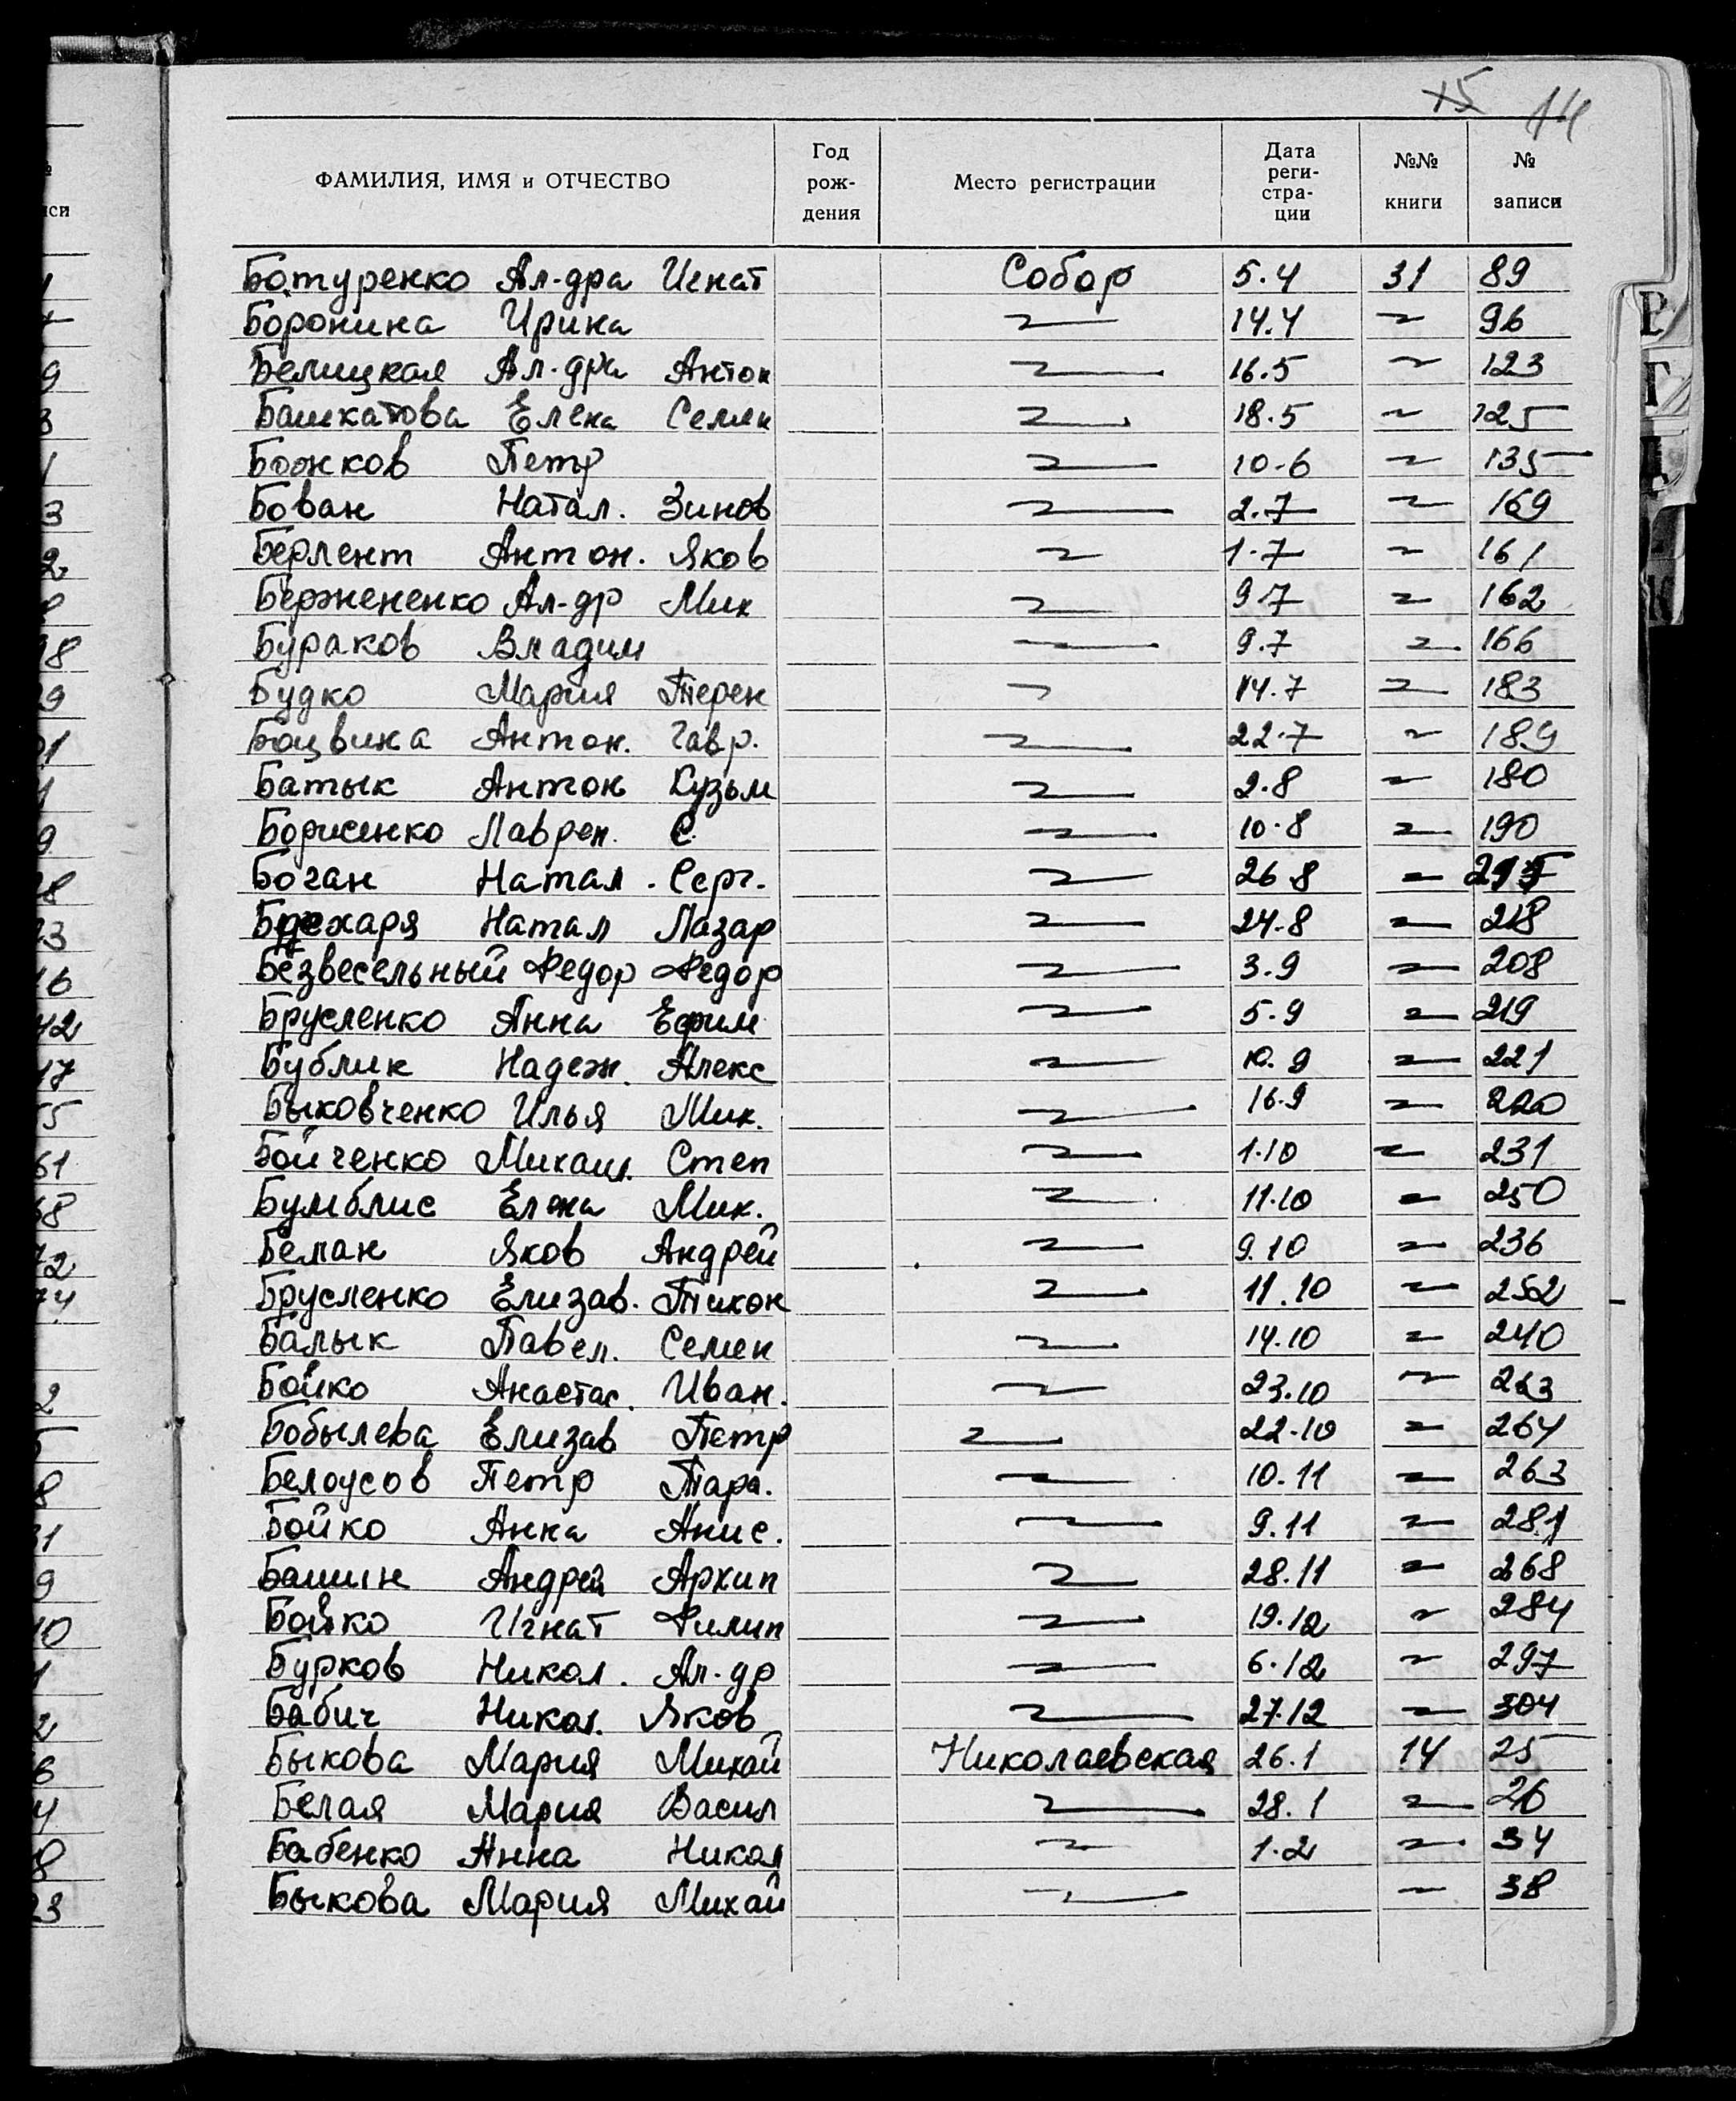 15 14
ФАМИЛИЯ, ИМЯ и ОТЧЕСТВО Год рож- дения Место регистрации Дата реги- стра- ции №№ книги № записи
Ботуренко Ал-дра Игнат Собор 5.4 31 89
Боронина Ирина 14.4 96
Белицкая Ал-дра Антон 16.5 123
Башкатова Елена Семен 18.5 125
Божков Петр 10.6 135
Бован Натал. Зинов 2.7 169
Берлент Антон. Яков 1.7 161
Бержененко Ал-др Мих 9.7 162
Бураков Владим 9.7 166
Будко Мария Терен 14.7 183
Боцвина Антон. Гавр. 22.7 189
Батык Антон Кузьм 2.8 180
Борисенко Лаврен. С. 10.8 190
Боган Натал. Серг. 26 8
Натал Лазар 24.8 218
Безвесельный Федор Федор 3.9 208
Брусленко Анна Ефим 5.9 219
Бублик Надеж. Алекс 10.9 221
Быковченко Илья Мих. 16.9 220
Бойченко Михаил. Степ 1.10 231
Бумблис Елена Мих. 11.10 250
Белан Яков Андрей 9.10 236
Брусленко Елизав. Тихон 11.10 252
Балык Павел. Семен 14.10 240
Бойко Анастас. Иван. 23.10 263
Бобылева Елизав Петр 22.10 264
Белоусов Петр Тара. 10.11 263
Бойко Анна Анис. 9.11 281
Башин Андрей Архип 28.11 268
Бойко Игнат Филип 19.12 284
Бурков Никол. Ал-др 6.12 297
Бабич Никол. Яков 27.12 304
Быкова Мария Михай Николаевская 26.1 14 25
Белая Мария Васил 28.1 26
Бабенко Анна Никол 1.2 34
Быкова Мария Михай 38